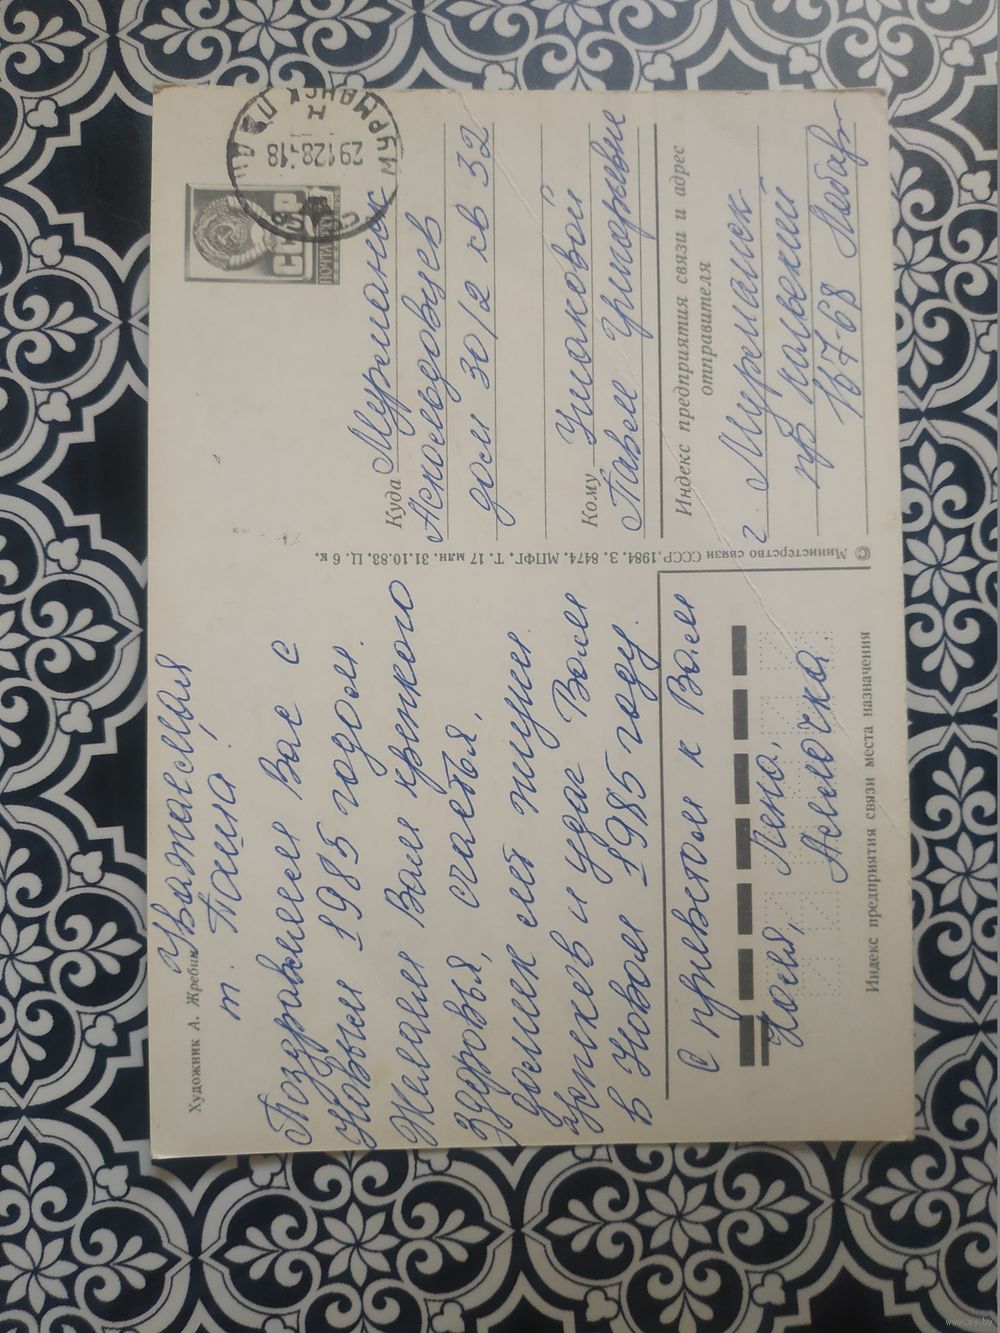 Художник А. Жребин
Уважаемая
т. Таша
Поздравляем Вас с
Новым 1985 годом.
Желаем Вам крепкого
здоровья, счастья,
долгих лет жизни
успехов и удач Вам
в Новом 1985 году.
С приветом к Вам
Лена,
Аллочка
Индекс предприятия связи места назначения
© Министерство связи СССР, 1984. З. 8474. МПФГ. Т. 17 млн. 31.10.83. Ц. 6 к.
МУРМАНСК
291284 18
СССР
ПОЧТА
Куда Мурманск
Аскольдовцев
дом 30/2 кв 32
Кому
Павел Григорьевич
Индекс предприятия связи и адрес
отправителя
г. Мурманск
пр Кольский
107-68
www.ay.by